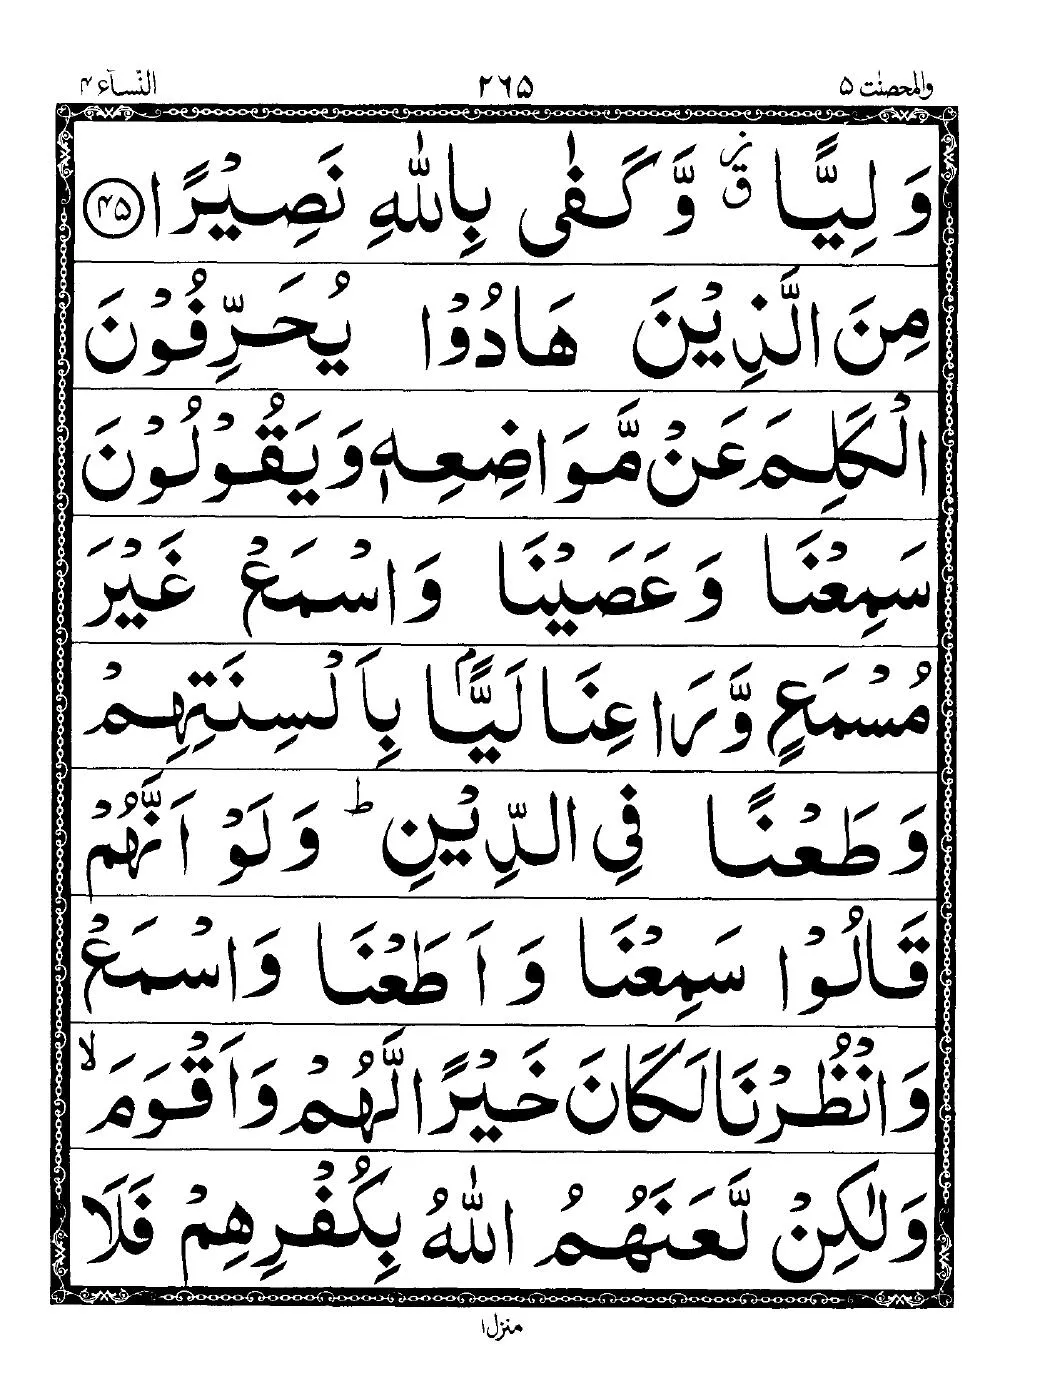 والمحصنت ۵ ۲۶۵ النسآء ۴
وَلِيًّا ۗ٘ وَّكَفٰى بِاللّٰهِ نَصِيْرًا ۴۵
مِنَ الَّذِيْنَ هَادُوْا يُحَرِّفُوْنَ
الْكَلِمَ عَنْ مَّوَاضِعِهٖ وَيَقُوْلُوْنَ
سَمِعْنَا وَعَصَيْنَا وَاسْمَعْ غَيْرَ
مُسْمَعٍ وَّرَاعِنَا لَيًّۢا بِاَلْسِنَتِهِمْ
وَطَعْنًا فِى الدِّيْنِ ؕ وَلَوْ اَنَّهُمْ
قَالُوْا سَمِعْنَا وَاَطَعْنَا وَاسْمَعْ
وَانْظُرْنَا لَكَانَ خَيْرًا لَّهُمْ وَاَقْوَمَ ۙ
وَلٰكِنْ لَّعَنَهُمُ اللّٰهُ بِكُفْرِهِمْ فَلَا
منزل ۱